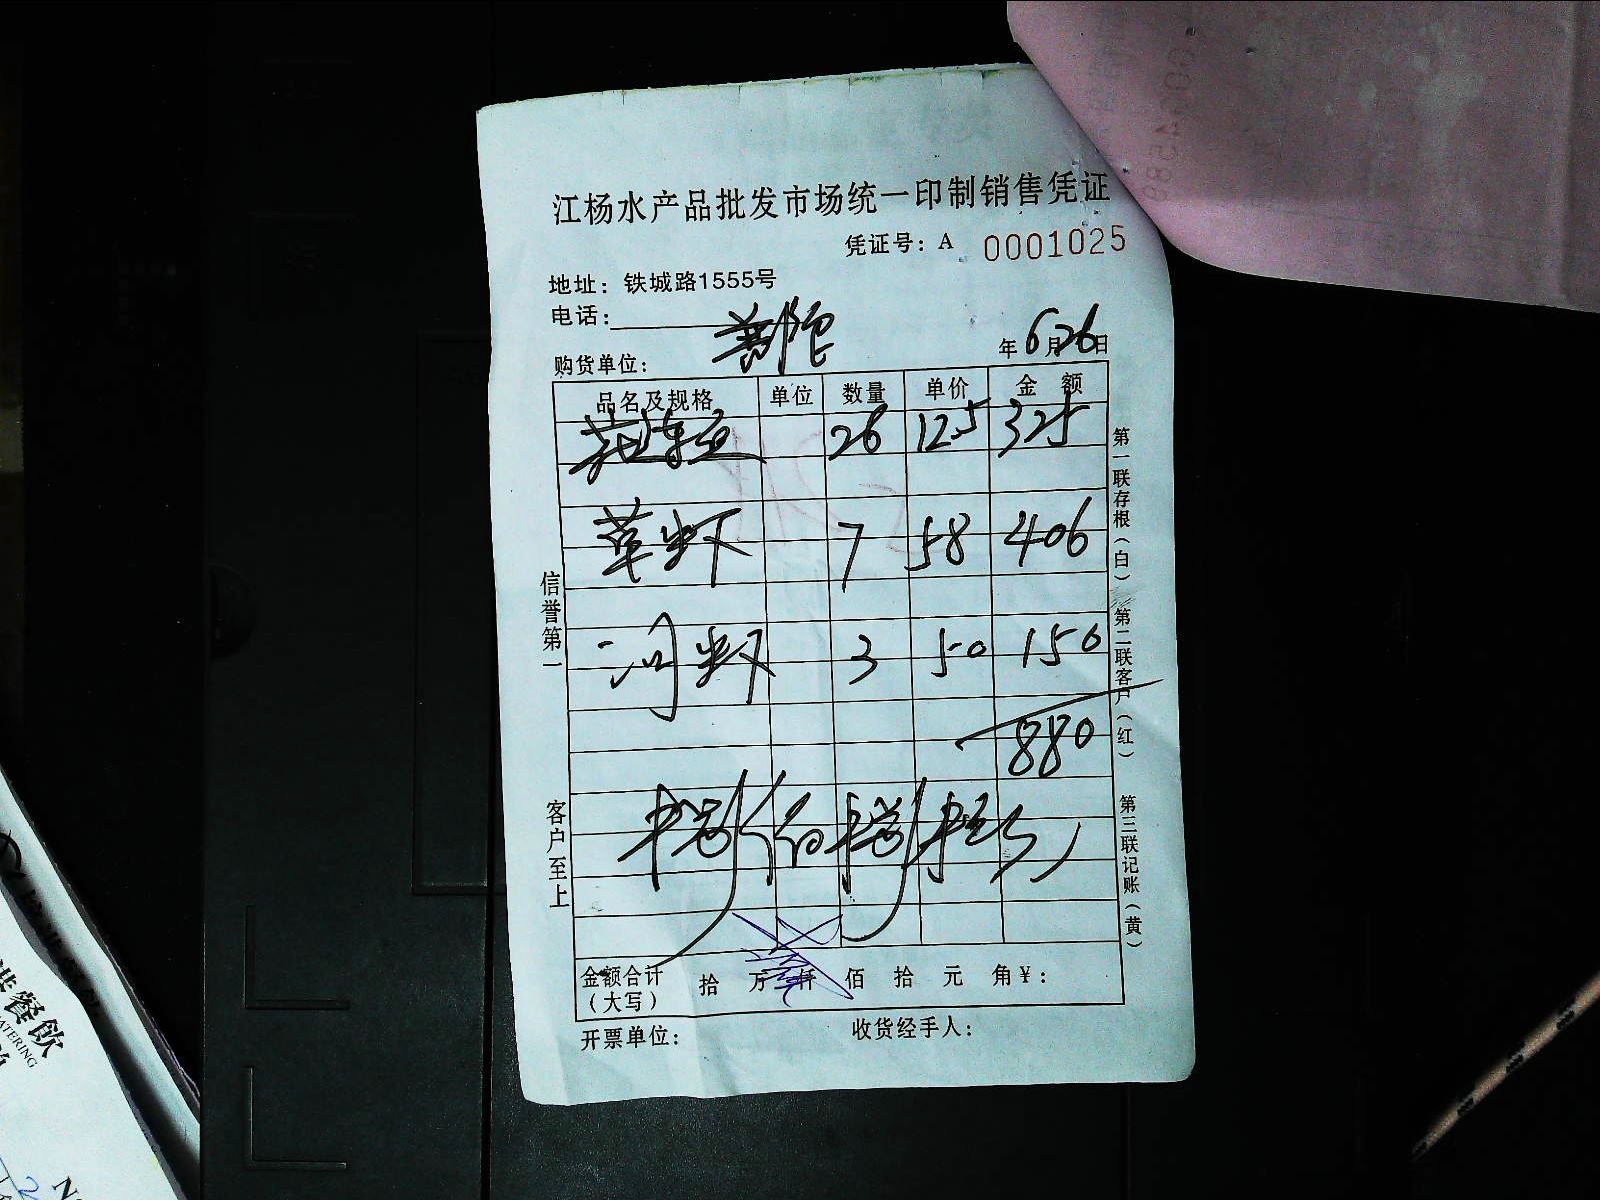 江杨水产品批发市场统一印制销售凭证
凭证号：A 0001025
地址：铁城路1555号
电话：
购货单位：
年6月26日
品名及规格 单位 数量 单价 金额
26 12.5 325
草虾 7 58 406
河虾 3 50 150
880
捌佰捌拾元
金额合计（大写） 拾 万 仟 佰 拾 元 角 ¥：
开票单位： 收货经手人：
信誉第一
客户至上
第一联存根（白）
第二联客户（红）
第三联记账（黄）
餐飲
CATERING